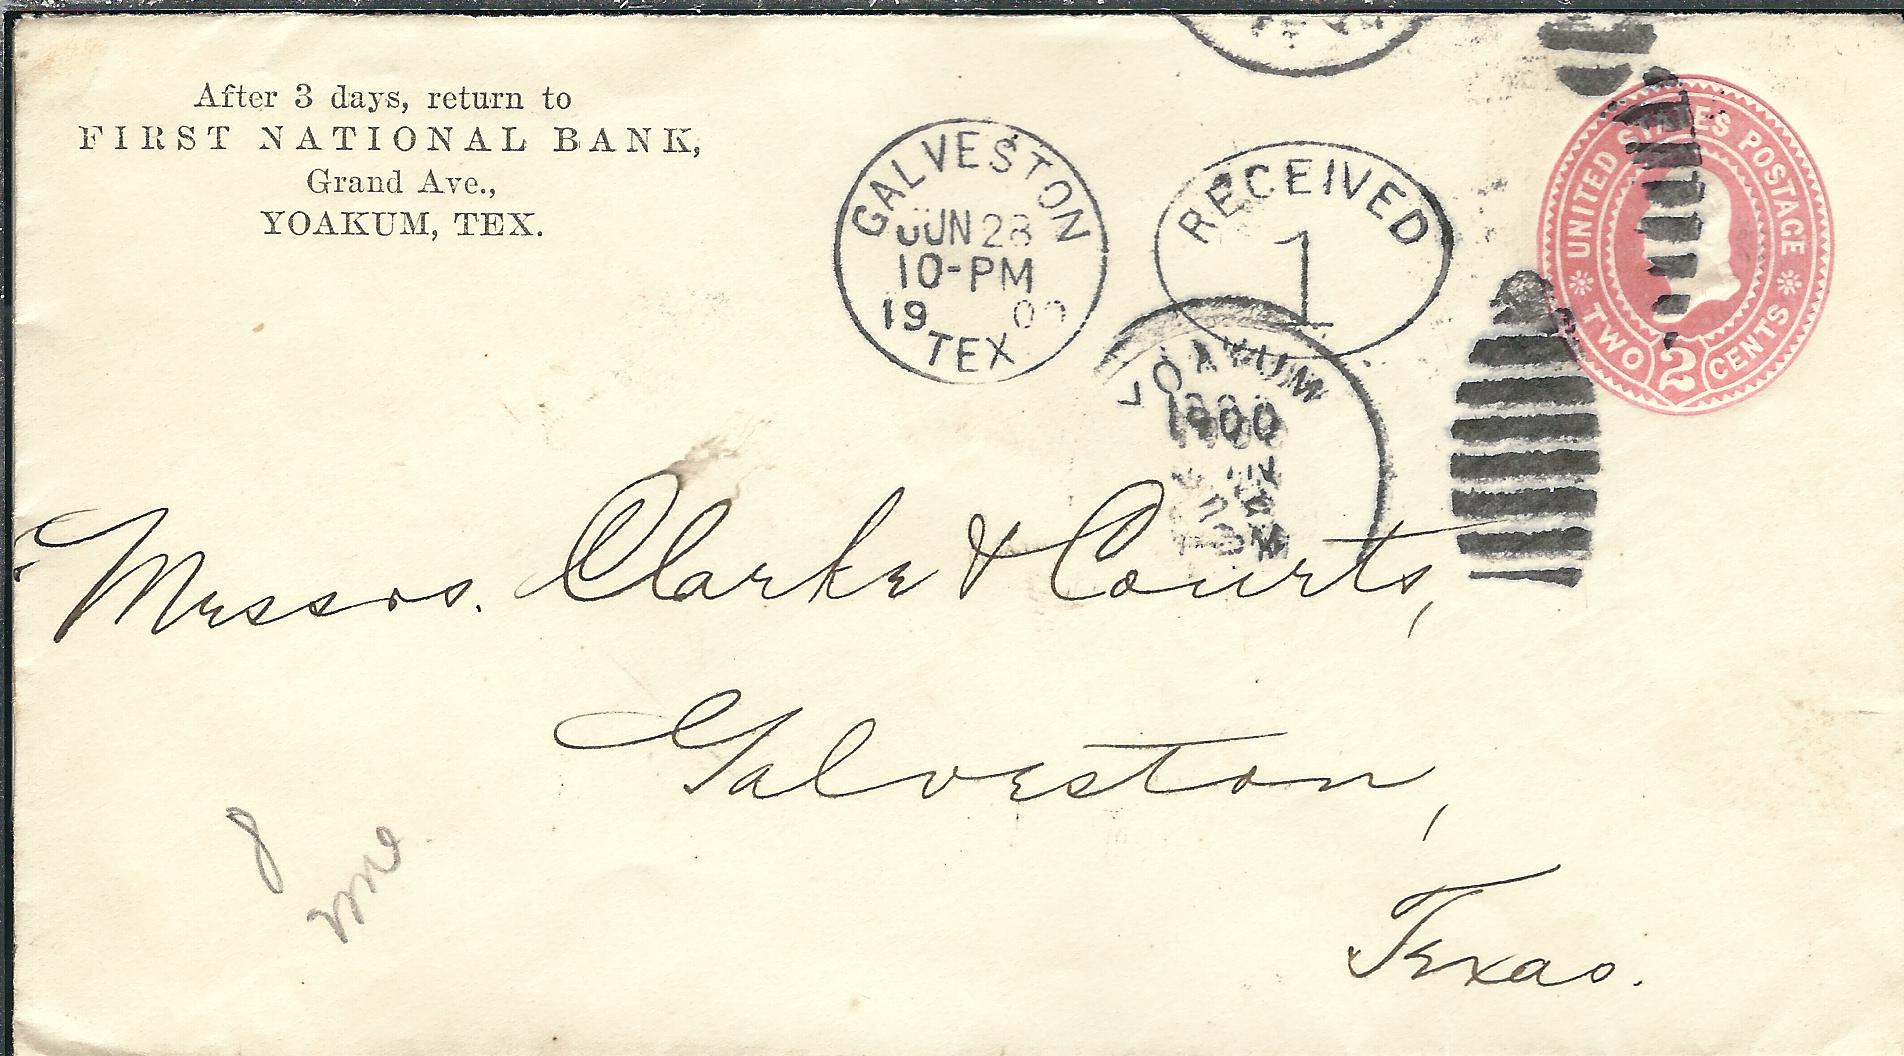 After 3 days, return to
FIRST NATIONAL BANK,
Grand Ave.,
YOAKUM, TEX.
GALVESTON
JUN 28
10-PM
19 00
TEX
RECEIVED
1
YOAKUM
1900
UNITED STATES POSTAGE
TWO 2 CENTS
Messrs. Clarke & Courts,
Galveston,
Texas.
8